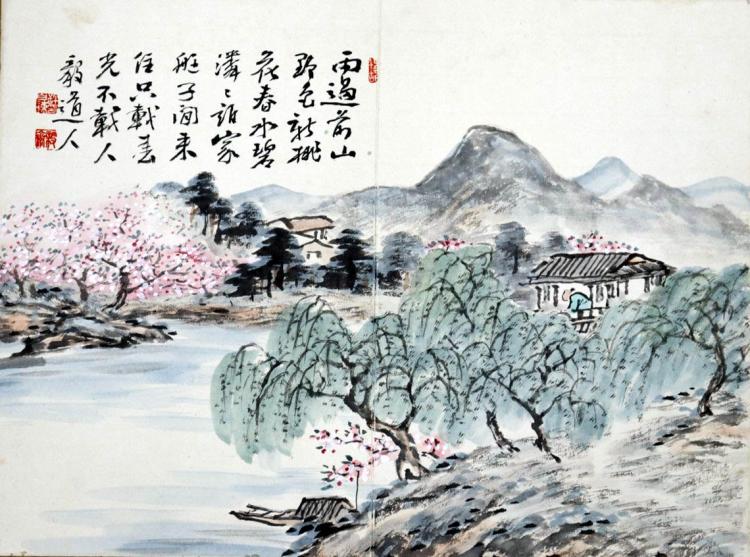 雨過前山
野色新桃
花春水碧
潾〻誰家
艇子閒來
往只載春
光不載人
毅道人